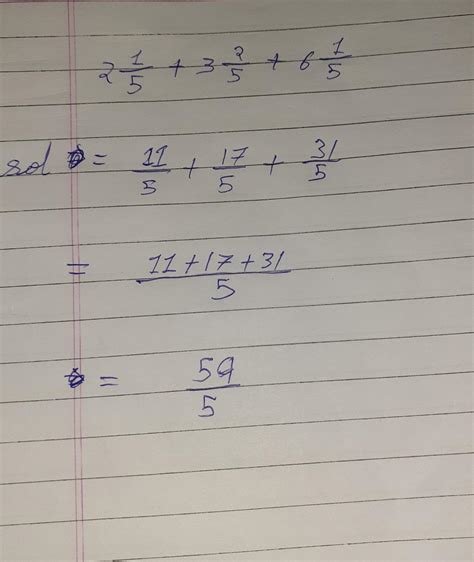 2 1/5 + 3 2/5 + 6 1/5
sol = 11/5 + 17/5 + 31/5
= 11+17+31/5
= 59/5